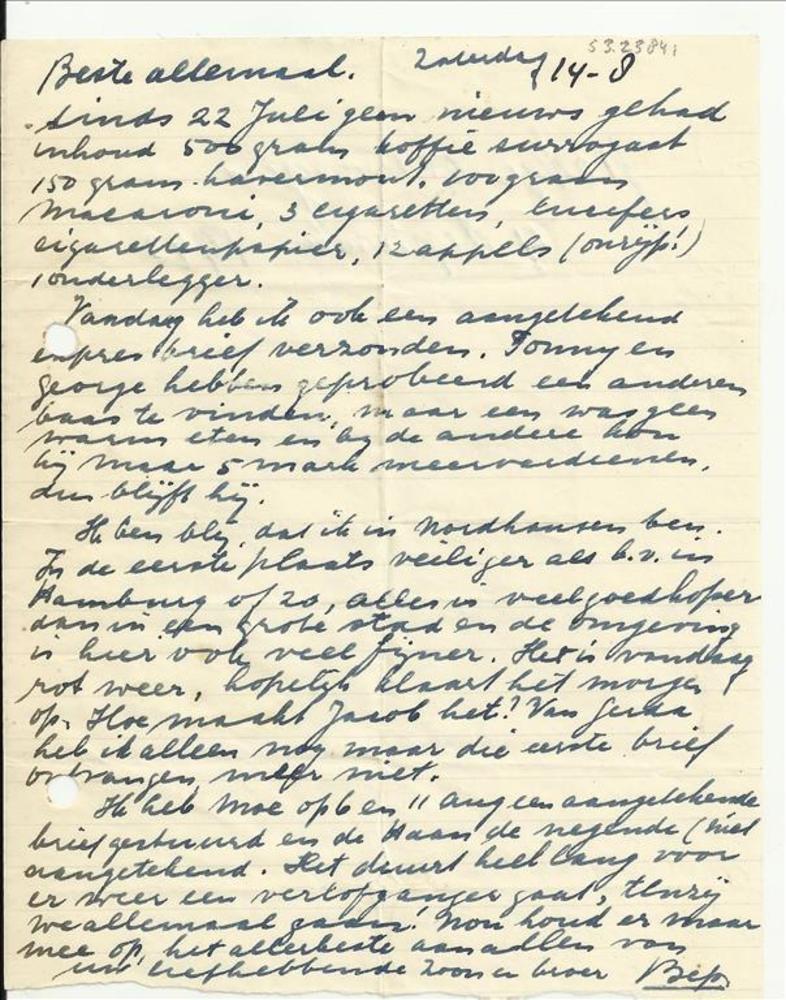 53.2384,
Beste allemaal. Zaterdag 14-8
Sinds 22 Juli geen nieuws gehad
inhoud 500 gram koffie surrogaat
150 gram havermout, 100 gram
macaroni, 3 cigaretten, lucifers
cigarettenpapier, 12 appels (onrijp!)
1 onderlegger.
Vandaag heb ik ook een aangetekend
expres brief verzonden. Tonny en
george hebben geprobeerd een anderen
baas te vinden, maar een was geen
warm eten en bij de andere kon
hij maar 5 mark meer verdienen,
dus blijft hij.
Ik ben blij, dat ik in Nordhausen ben.
In de eerste plaats veiliger als b.v. in
Hamburg of zo, alles is veel goedkoper
dan in een grote stad en de omgeving
is hier ook veel fijner. Het is vandaag
rot weer, hopelijk klaart het morgen
op. Hoe maakt Jacob het? Van Gerda
heb ik alleen nog maar die eerste brief
ontvangen, meer niet.
Ik heb Moe op 6 en 11 aug een aangetekende
brief gestuurd en de Haan de negende (niet
aangetekend. Het duurt heel lang voor
er weer een verlofganger gaat, tenzij
we allemaal gaan! Nou houd er maar
mee op, het allerbeste aan allen van
uw liefhebbende zoon en broer Bep